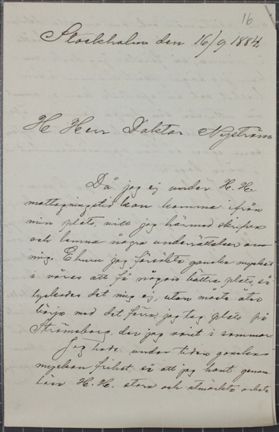 16
Stockholm den 16/9 1884.
H Herr Doktor Nyström
Då jag ej under H. H.
mottagningstid kan komma ifrån
min plats, vill jag härmed skrifva
och lemna några underrättelser om
mig. Ehuru jag försökte ganska mycket
i våras att få någon bättre plats, så
lyckades det mig ej, utan måste åter
börja med det förra, jag tog plats på
Strömsborg, der jag varit i sommar.
Jag hade under tiden ganska
mycken frihet, så att jag kunt genom
läsa H. H. stora och utmärkta arbete